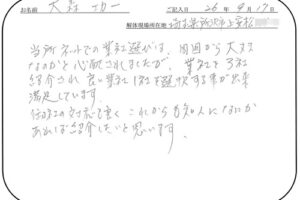 お名前 大森 ユカ一 ご記入日 26年9月17日
解体現場所在地 埼玉県所沢市上安松
当所ネットでの業者選びは、周囲から大丈夫
なのかと心配されましたが、業者を3社
紹介され良い業者1社を選択する事が出来
満足しています。
御社の対応も良くこれからも知人になにか
あれば紹介したいと思います。